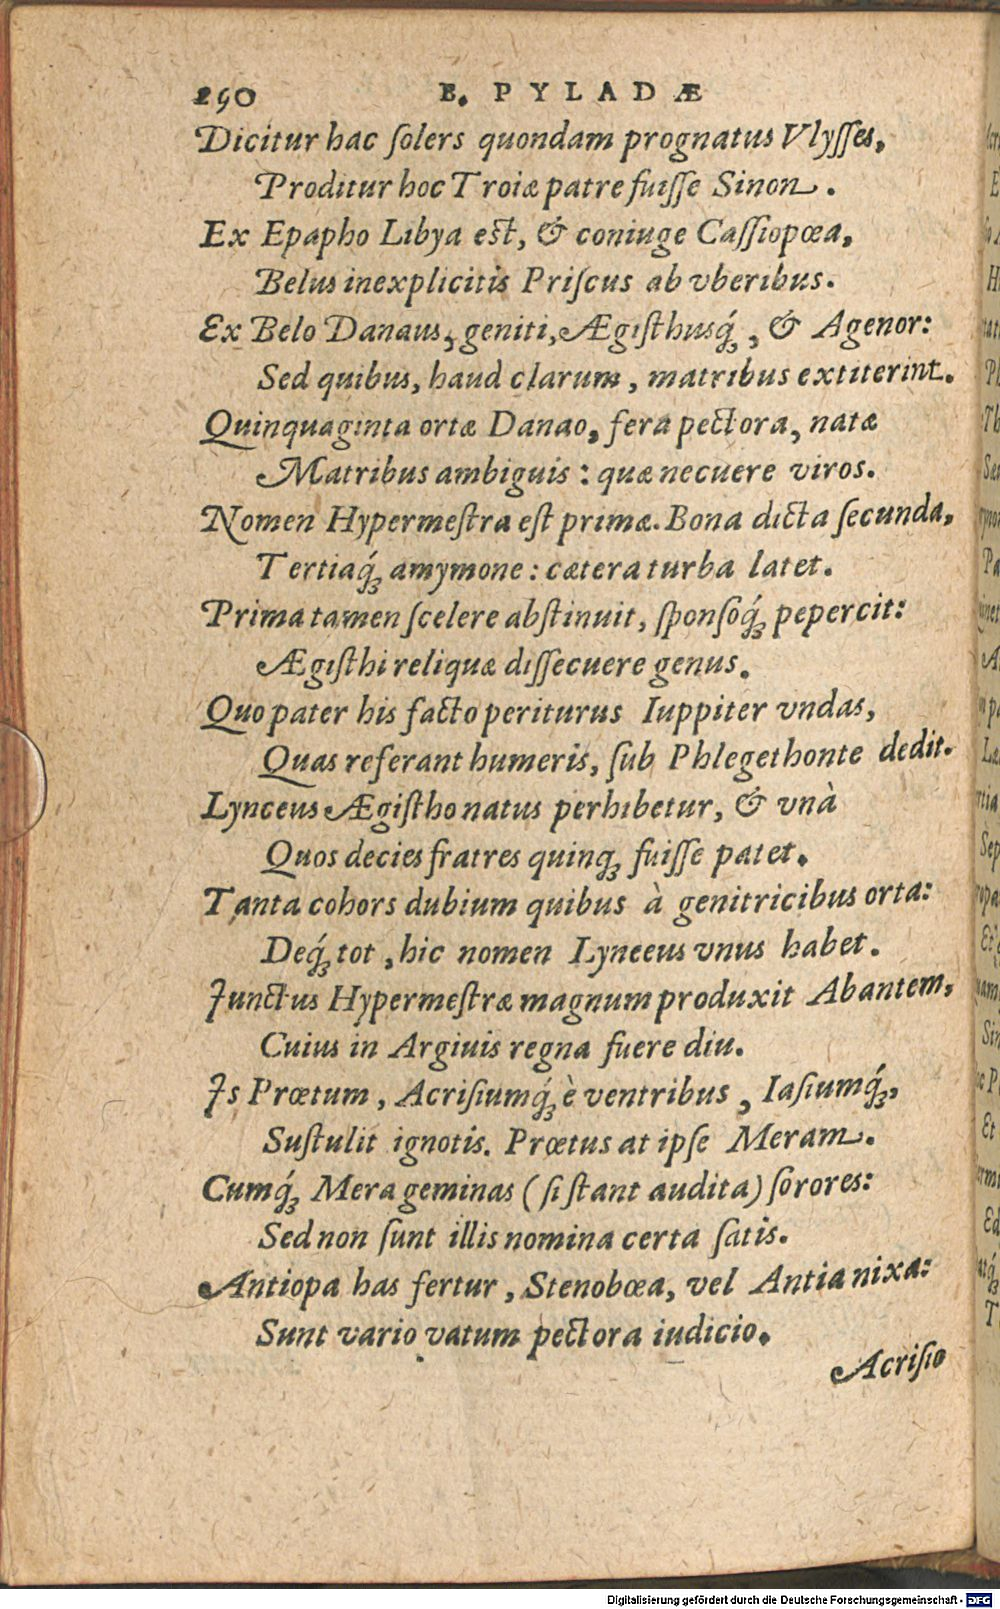 290 B. PYLADÆ
Dicitur hac ſolers quondam prognatus Vlyſſes,
Proditur hoc Troiæ patre fuiſſe Sinon.
Ex Epapho Libya est, & coniuge Caſſiopœa,
Belus inexplicitis Priſcus ab vberibus.
Ex Belo Danaus, geniti, Ægiſthusq́ꝫ, & Agenor:
Sed quibus, haud clarum, matribus extiterint.
Quinquaginta ortæ Danao, fera pectora, natæ
Matribus ambiguis: quæ necuere viros.
Nomen Hypermeſtra eſt primæ. Bona dicta ſecunda,
Tertiaq́ꝫ amymone: cætera turba latet.
Prima tamen ſcelere abſtinuit, ſponſōq́ꝫ pepercit:
Ægiſthi reliquæ diſſecuere genus.
Quo pater his facto periturus Iuppiter vndas,
Quas referant humeris, ſub Phlegethonte dedit.
Lynceus Ægiſtho natus perhibetur, & vnà
Quos decies fratres quinqꝫ fuiſſe patet.
Tanta cohors dubium quibus à genitricibus orta:
Deq́ꝫ tot, hic nomen Lynceus vnus habet.
Junctus Hypermeſtræ magnum produxit Abantem,
Cuius in Argiuis regna fuere diu.
Js Prœtum, Acriſiumq́ꝫ è ventribus, Iaſiumq́ꝫ,
Suſtulit ignotis. Prœtus at ipſe Meram.
Cumq́ꝫ Mera geminas (ſi ſtant audita) ſorores:
Sed non ſunt illis nomina certa ſatis.
Antiopa has fertur, Stenobœa, vel Antia nixa:
Sunt vario vatum pectora iudicio.
Acriſio
Digitalisierung gefördert durch die Deutsche Forschungsgemeinschaft - DFG